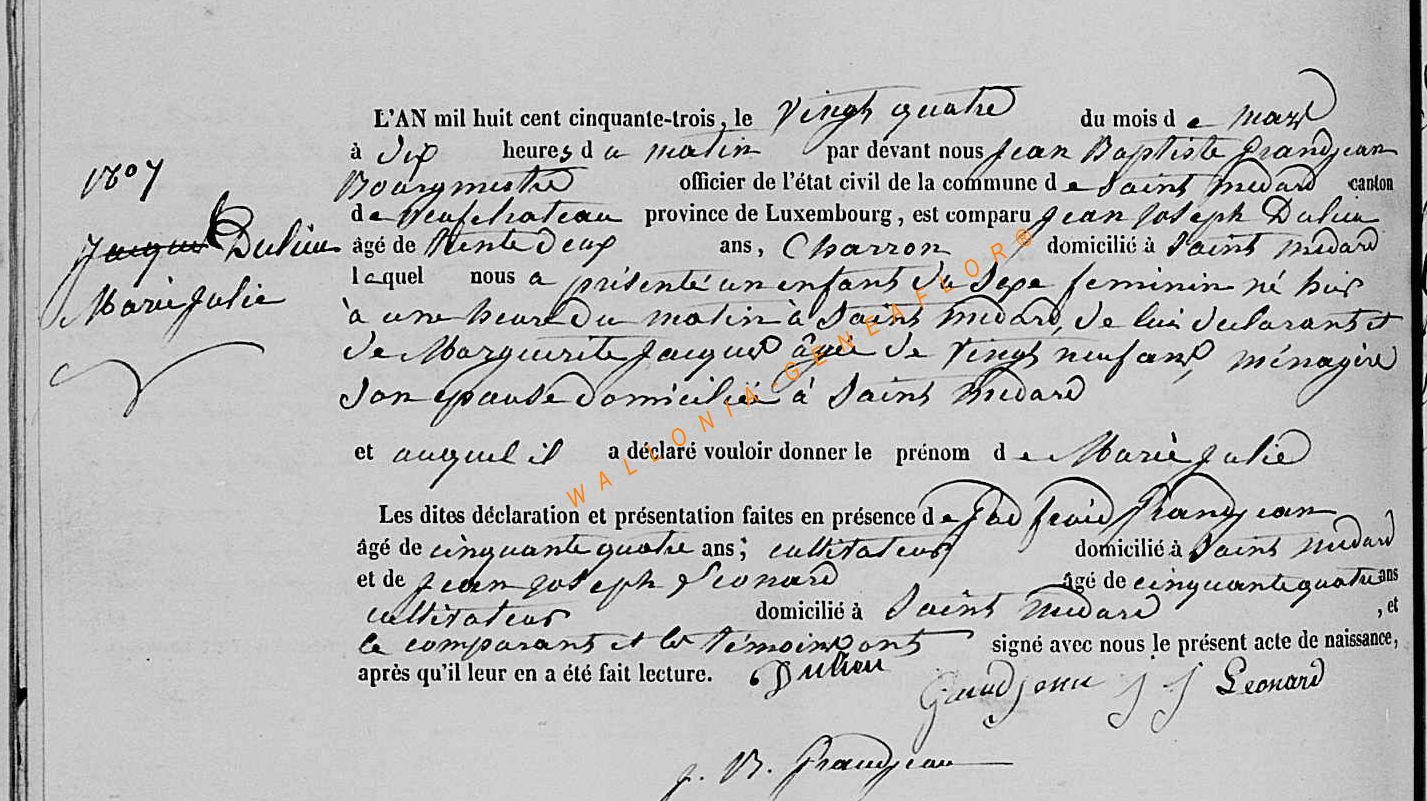 L'AN mil huit cent cinquante-trois, le vingt quatre du mois de mars
à dix heures du matin par devant nous Jean Baptiste Grandjean
Bourgmestre officier de l'état civil de la commune de Saint Médard canton
de Neufchateau province de Luxembourg, est comparu Jean Joseph Dulieu
âgé de trente deux ans, Charron domicilié à Saint Médard
lequel nous a présenté un enfant du sexe feminin né hier
à une heure du matin à Saint Médard, de lui declarant et
de Marguerite Jacques âgée de vingt neuf ans, ménagère
son épouse domiciliée à Saint Médard
et auquel il a déclaré vouloir donner le prénom de Marie Julie
Les dites déclaration et présentation faites en présence de Grandjean
âgé de cinquante quatre ans; cultivateur domicilié à Saint Médard
et de Jean Joseph Leonard âgé de cinquante quatre ans
cultivateur domicilié à Saint Médard, et
le comparant et les témoins ont signé avec nous le présent acte de naissance,
après qu'il leur en a été fait lecture. Dulieu
Grandjean J J Leonard
J. B. Grandjean
Jacques Dulieu
Marie Julie
WALLONIA-GENEAFLOR®